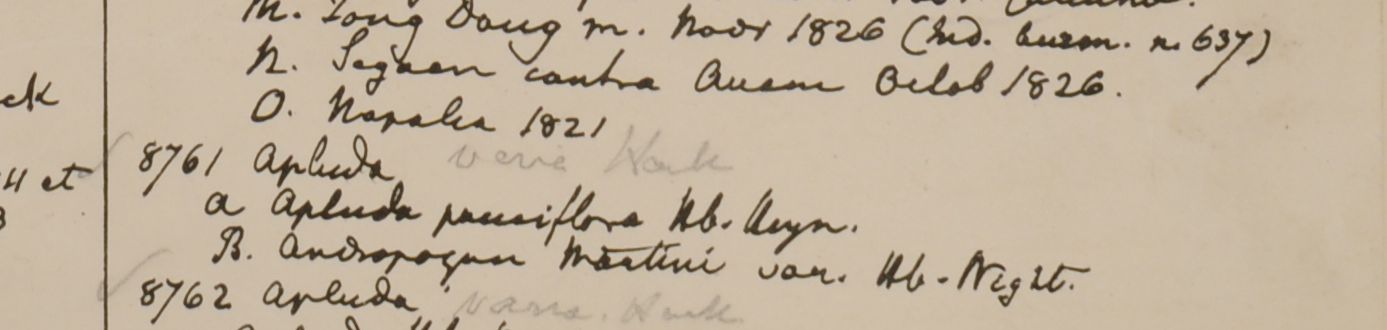 M. Tong Doug m. Novr 1826 (hd. burm. n. 637)
N. Segaen contra Avam Octob 1826.
O. Napalia 1821
ck
8761 Apluda varia Hack
et
a Apluda pauciflora Hb. Heyn.
B. Andropogon Martini var. Hb. Wight.
8762 Apluda varia. Hack